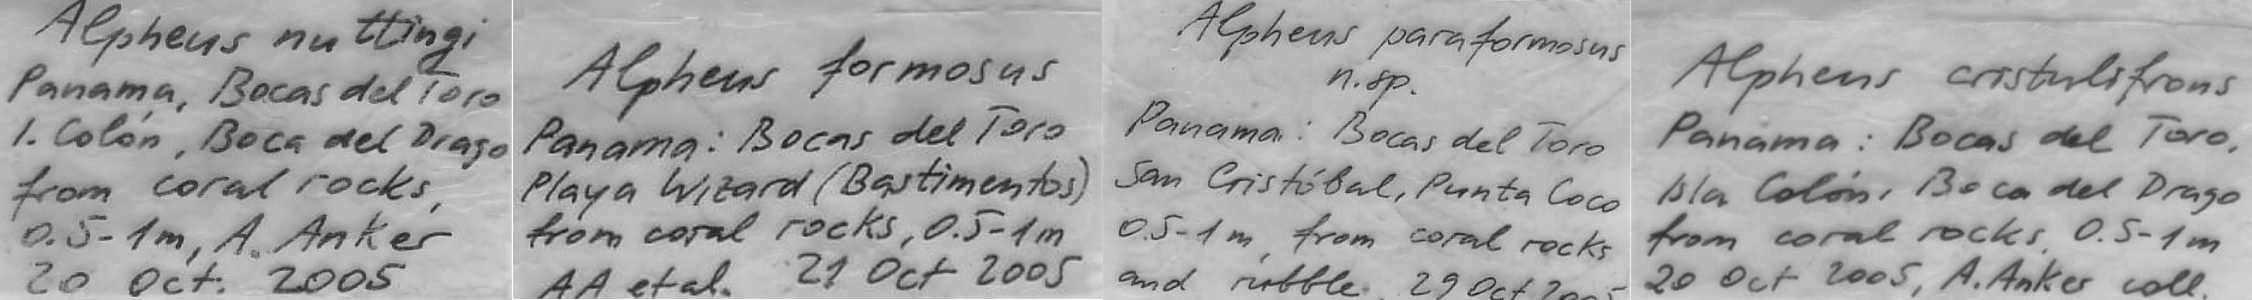 Alpheus nuttingi
Panama, Bocas del Toro
I. Colón, Boca del Drago
from coral rocks,
0.5-1m, A. Anker
20 Oct. 2005
Alpheus formosus
Panama: Bocas del Toro
Playa Wizard (Bastimentos)
from coral rocks, 0.5-1m
AA et al. 21 Oct 2005
Alpheus paraformosus
n.sp.
Panama: Bocas del Toro
San Cristóbal, Punta Coco
0.5-1m, from coral rocks
and rubble. 29 Oct 2005
Alpheus cristulifrons
Panama: Bocas del Toro,
Isla Colón, Boca del Drago
from coral rocks, 0.5-1m
20 Oct 2005, A. Anker coll.